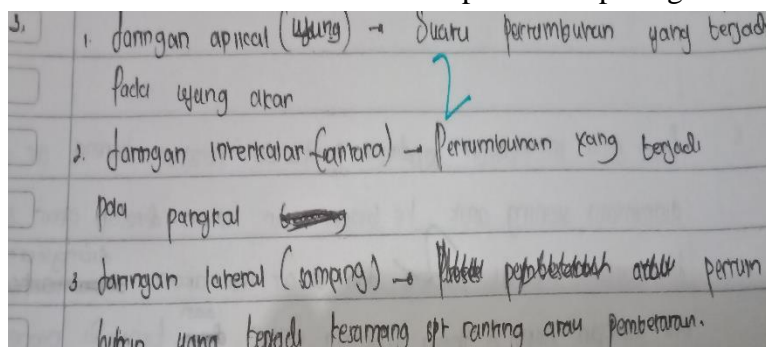 3. 1. Jaringan apikal (ujung) → Suatu pertumbuhan yang terjad
Pada ujung akar
2
2. Jaringan interkalar (antara) → Pertumbuhan yang terjadi
pada pangkal
3. Jaringan lateral (samping) → pertum
buhan yang terjadi kesamping spt ranting atau pembesaran.